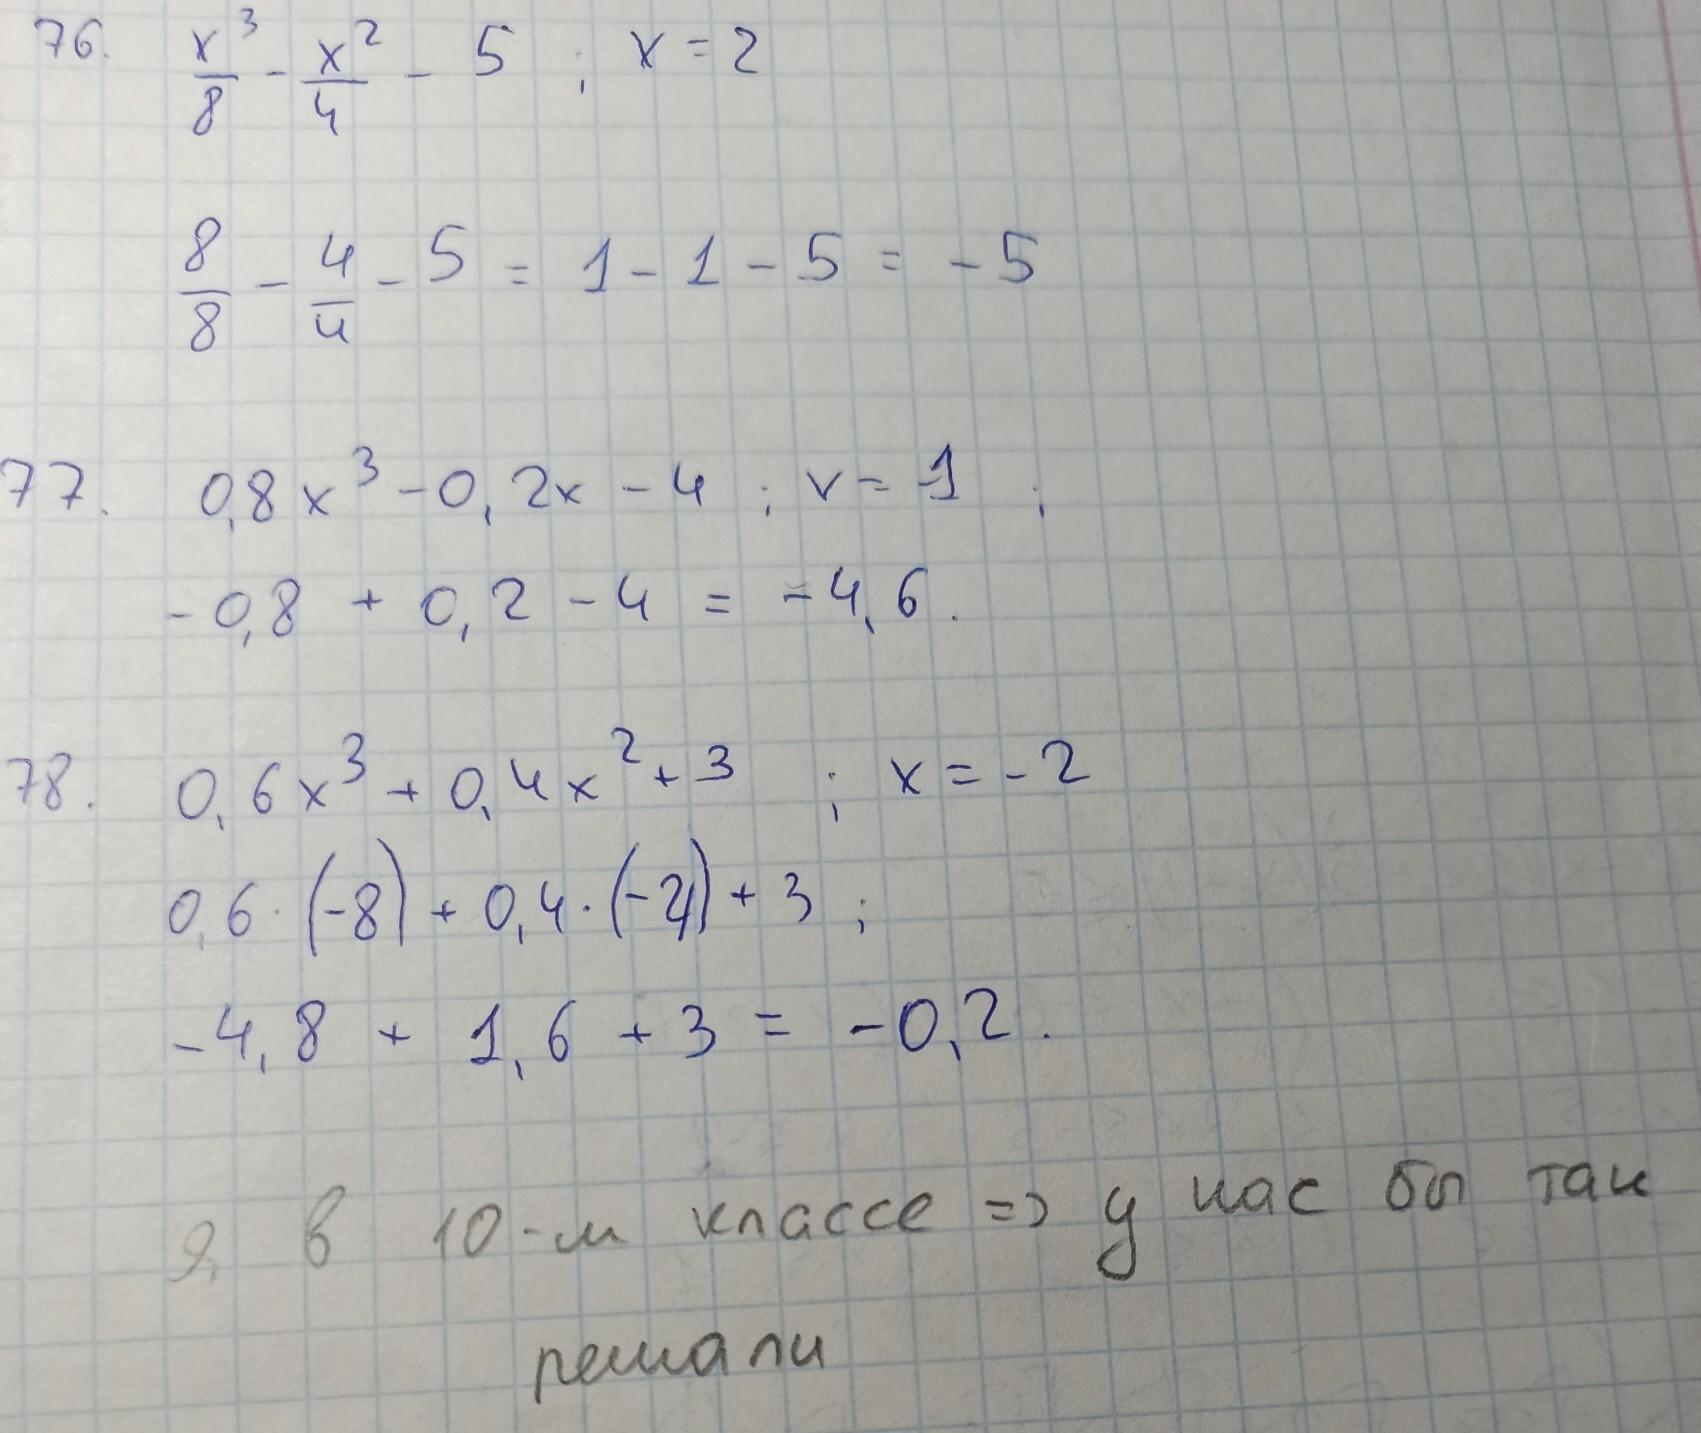 76. x³/8 - x²/4 - 5 ; x = 2
8/8 - 4/4 - 5 = 1 - 1 - 5 = - 5
77. 0,8x³ - 0,2x - 4 ; x = -1 ;
- 0,8 + 0,2 - 4 = - 4,6.
78. 0,6x³ + 0,4x² + 3 ; x = - 2
0,6 · (-8) + 0,4 · (-4) + 3 ;
- 4,8 + 1,6 + 3 = - 0,2.
Я в 10-м классе => у нас бы так
решали